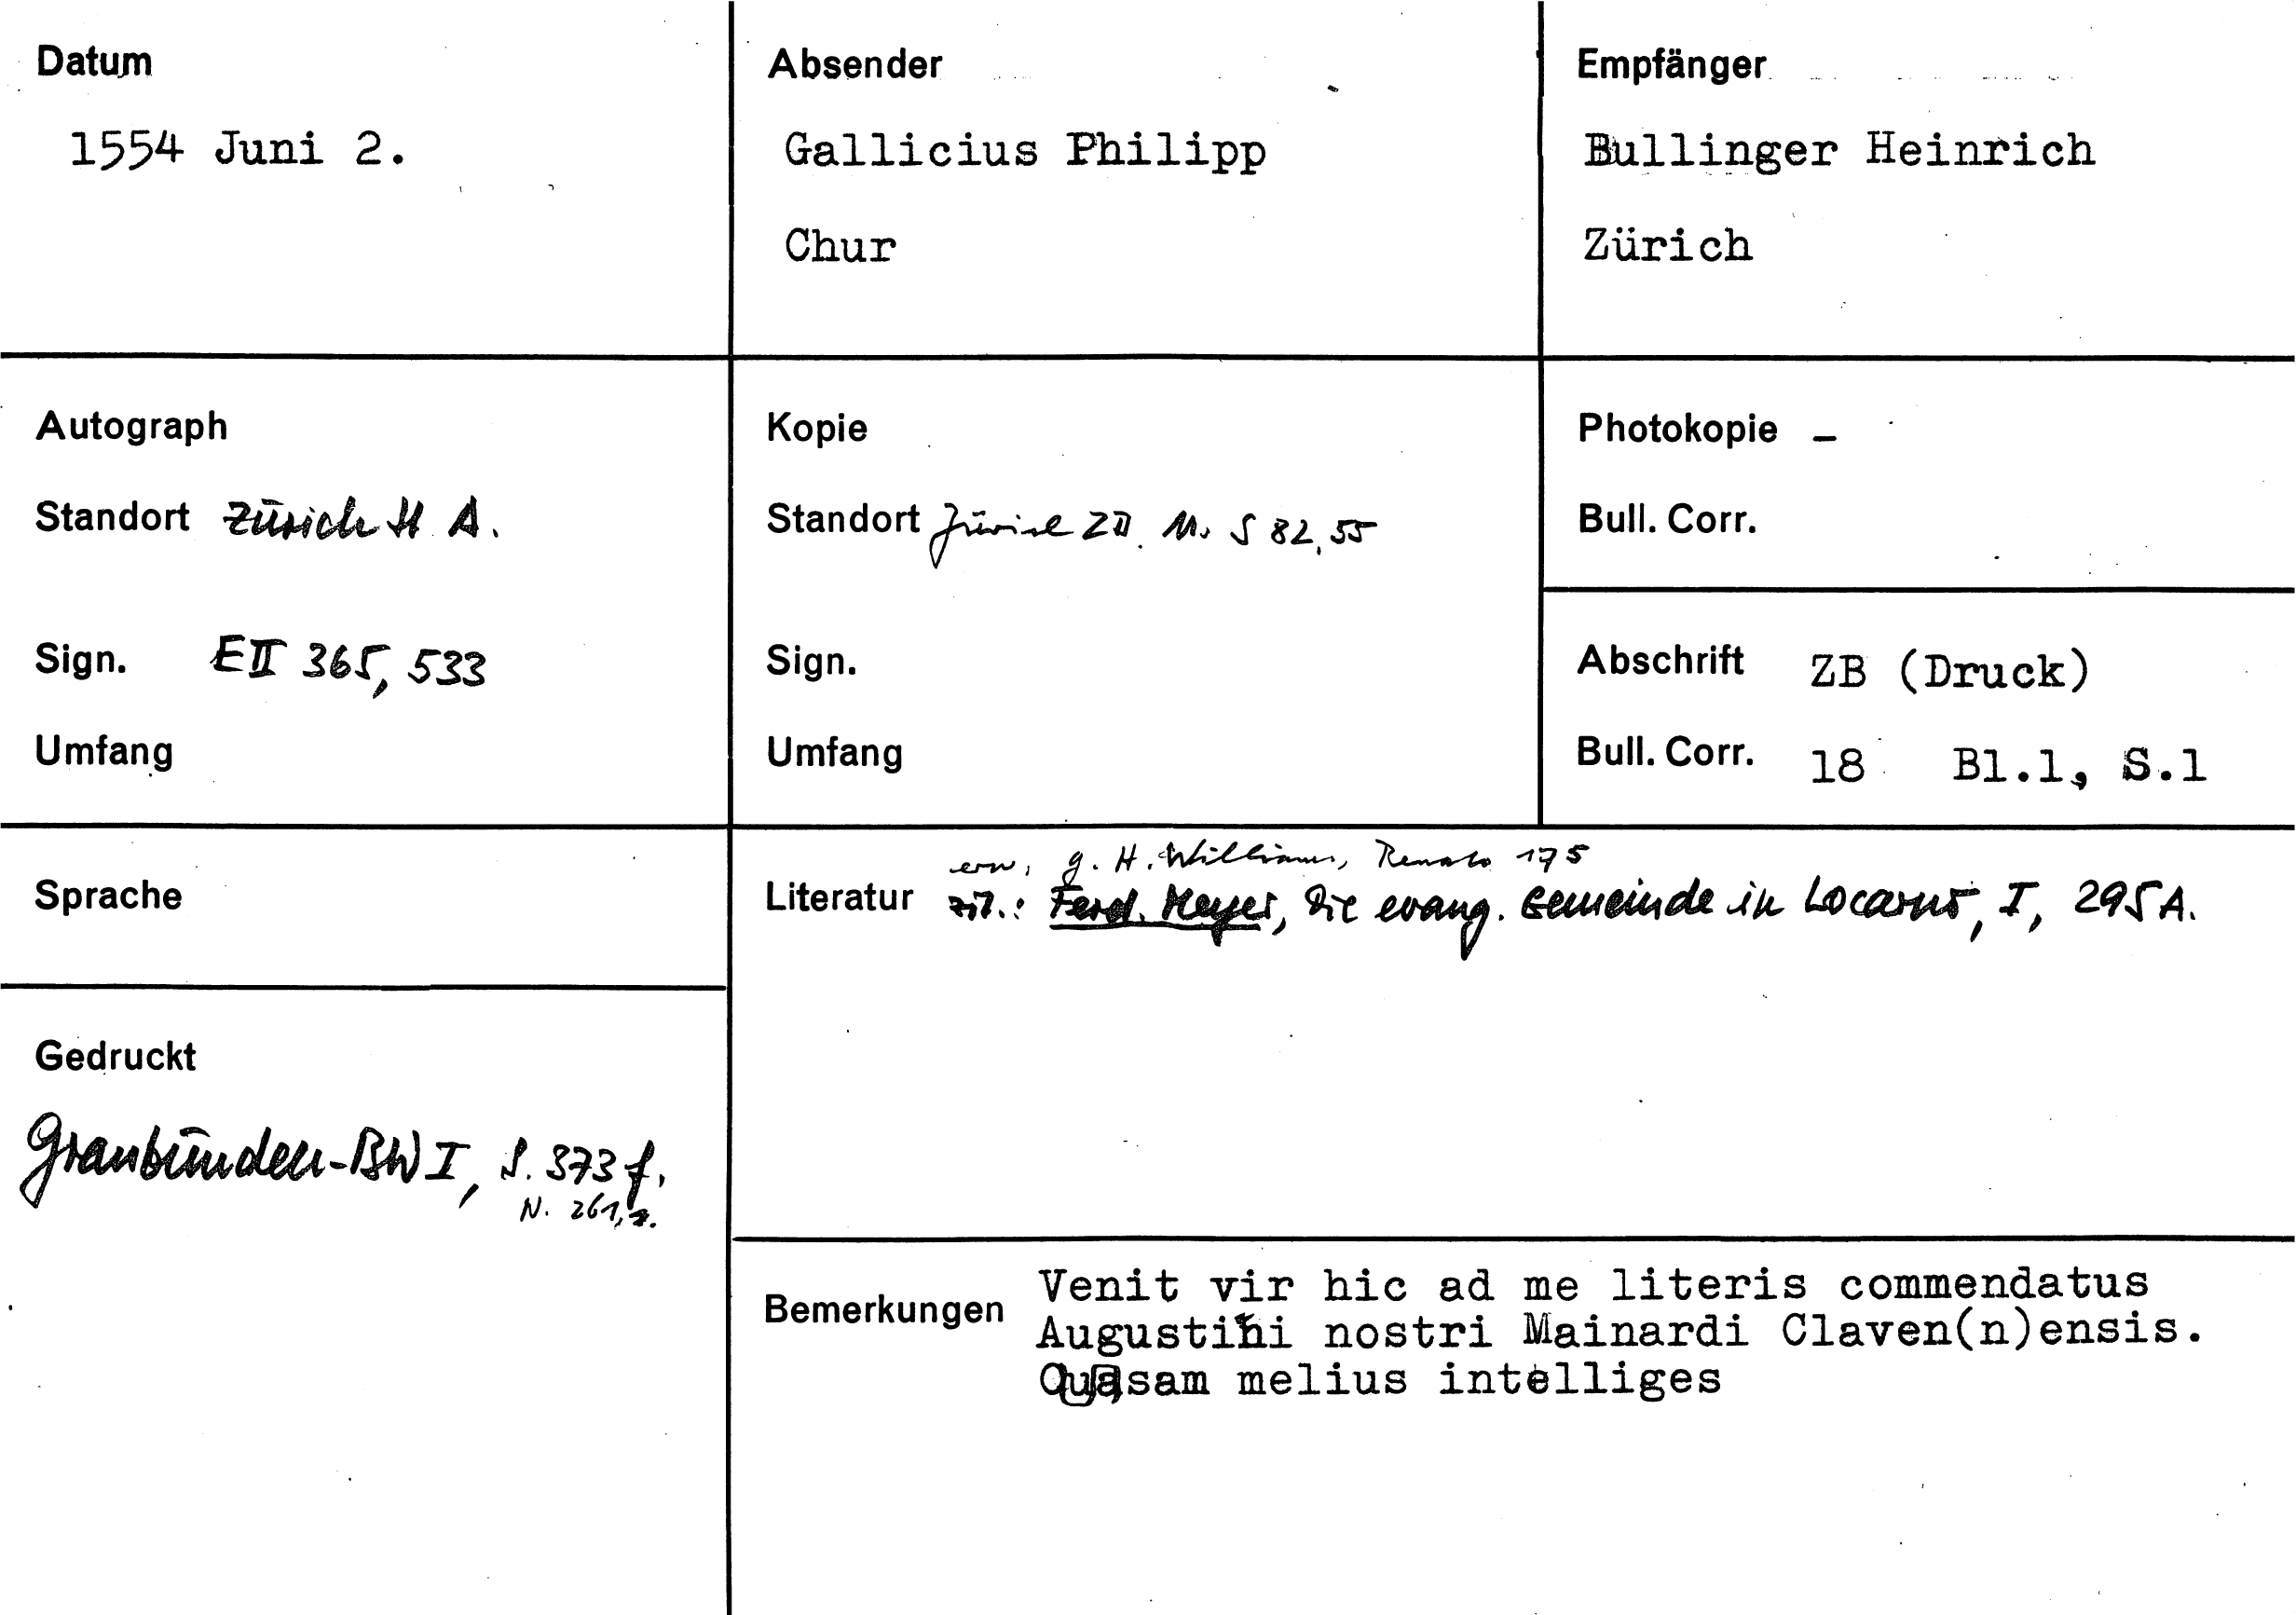 Datum
1554 Juni 2.
Absender
Gallicius Philipp
Chur
Empfänger
Bullinger Heinrich
Zürich
Autograph
Standort Zürich St A.
Sign. E II 365, 533
Umfang
Kopie
Standort Zürich ZB. Ms S 82, 55
Sign.
Umfang
Photokopie –
Bull. Corr.
Abschrift ZB (Druck)
Bull. Corr. 18 Bl.1, S.1
Sprache
Literatur
erw. G. H. Williams, Renato 175
zit.: Ferd. Meyer, Die evang. Gemeinde in Locarno, I, 295 A.
Gedruckt
Graubünden-BW I, S. 373 f.
N. 261,
Bemerkungen
Venit vir hic ad me literis commendatus
Augustini nostri Mainardi Claven(n)ensis.
melius intelliges